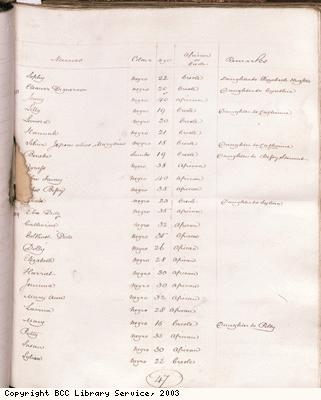 Names Colour Age African or Creole Remarks
Sophy Negro 22 Creole Daughter to Elizabeth
Eleanor Negro 20 Creole Daughter to Cynthia
Jenny Negro 40 African
Letty Negro 19 Creole Daughter to Catherine
Leonora Negro 20 Creole
Hannah Negro 21 Creole
alias Negro 18 Creole Daughter to Catherine
Sambo 19 Creole Daughter to
Negro 38 African
Fanny Negro 40 African
Negro 35 African
Negro 20 Creole Daughter to
Dolly Negro 35 African
Catherine Negro 32 African
Negro 35 African
Dolly Negro 26 African
Elizabeth Negro 28 African
Harriet Negro 30 African
Jemima Negro 30 African
Mary Ann Negro 32 African
Negro 28 African
Mary Negro 16 Creole Daughter to Polly
Polly Negro 35 African
Susan Negro 30 African
Negro 22 Creole
47
Copyright BCC Library Service, 2003